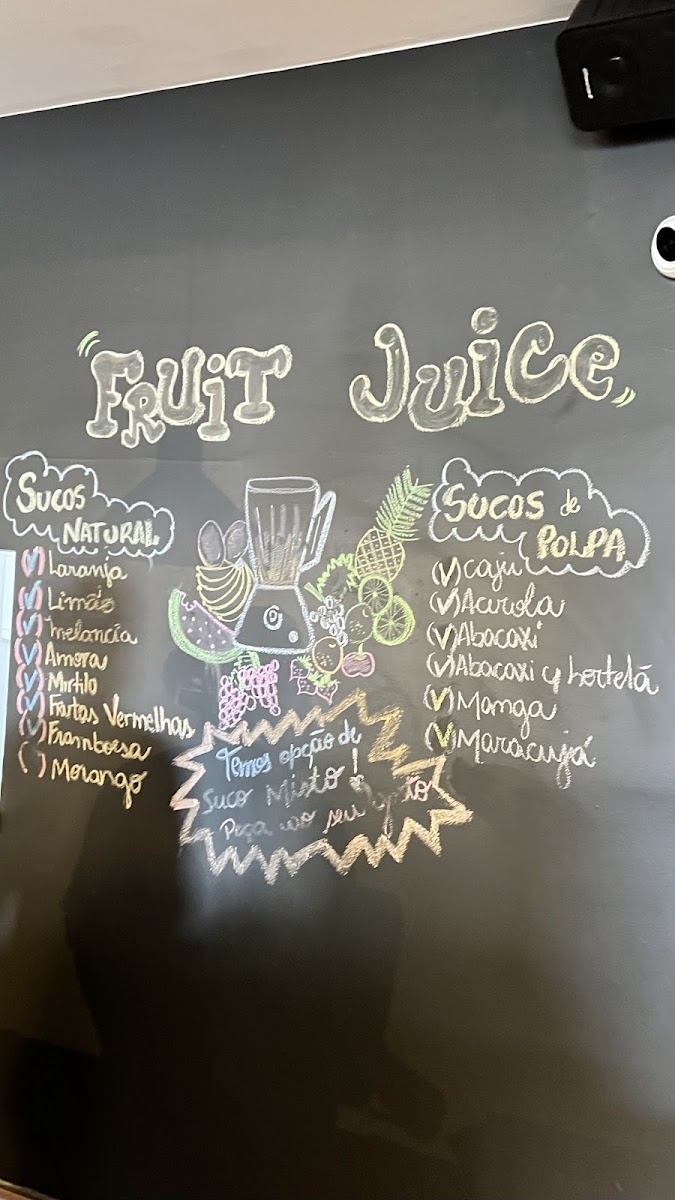 FRUIT JUICE
SUCOS
NATURAL
(✓) Laranja
(✓) Limão
(✓) melancia
(✓) Amora
(✓) Mirtilo
(✓) Frutas Vermelhas
(✓) Framboesa
( ) Morango
Temos opção de
Suco Misto!
Peça ao seu gosto
SUCOS de
POLPA
(✓) caju
(✓) Acerola
(✓) Abacaxi
(✓) Abacaxi y hortelã
(✓) Manga
(✓) Maracujá